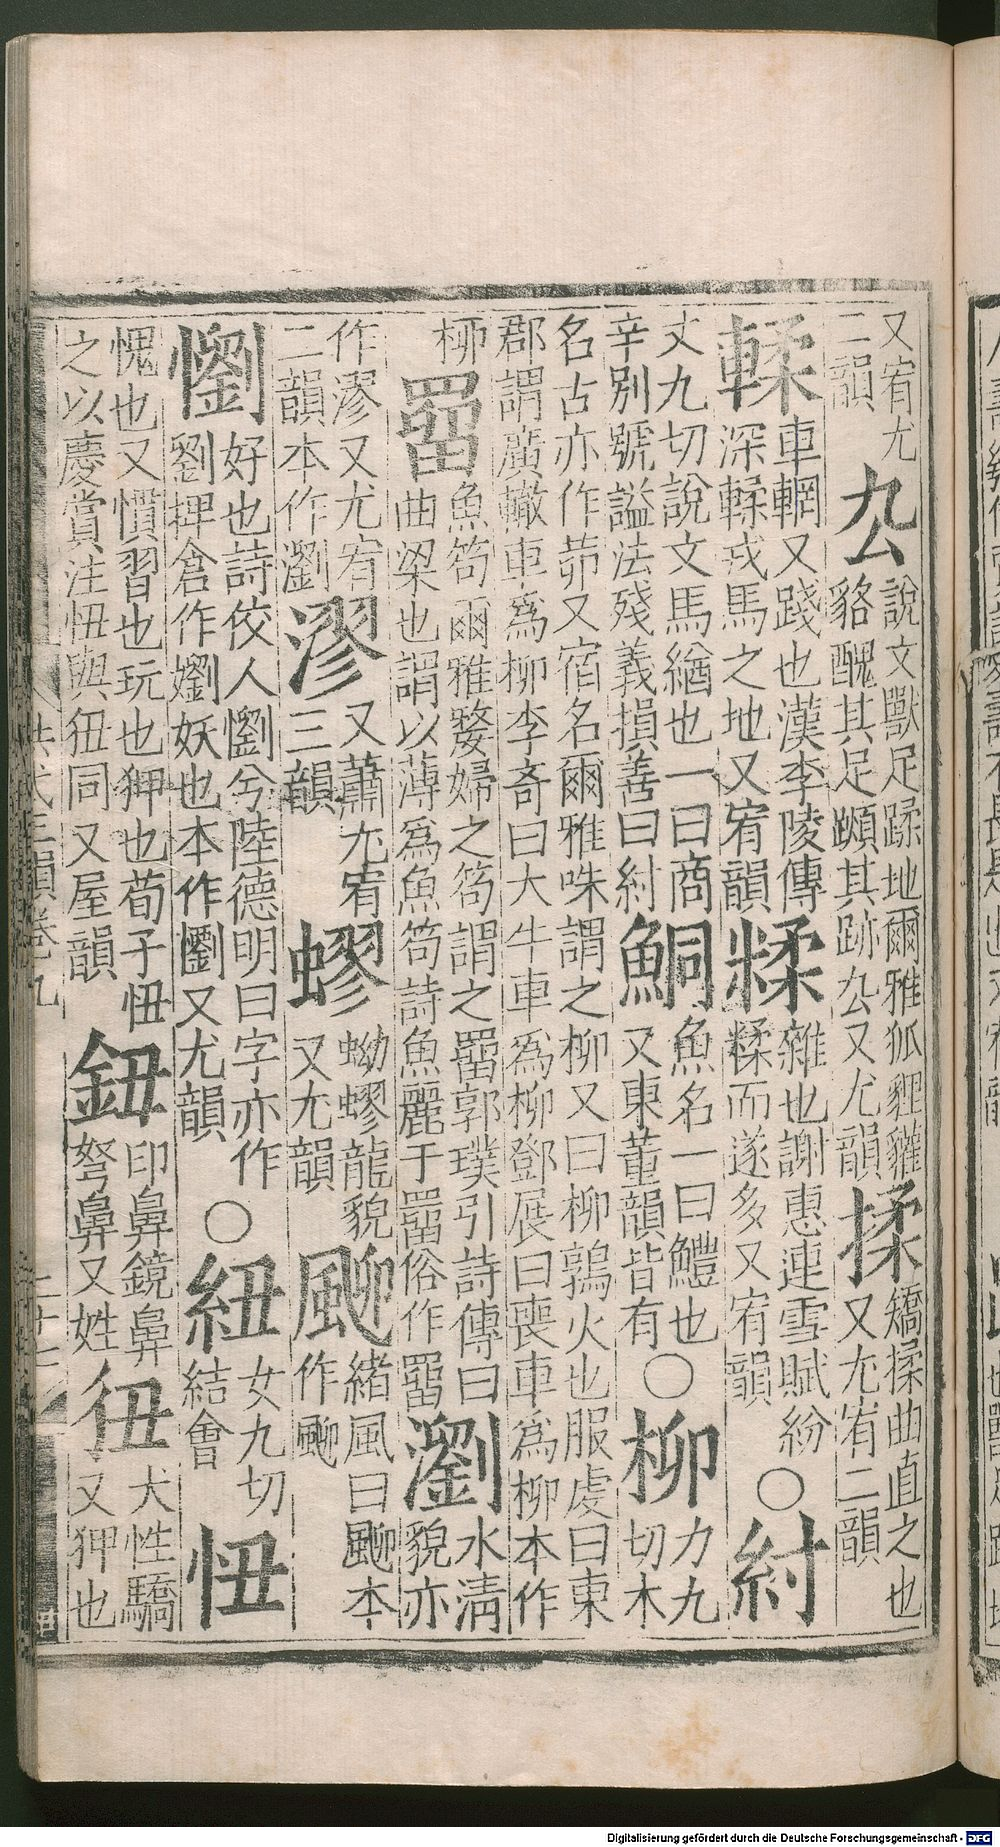 又宥尤二韻厹說文獸足蹂地爾雅狐貍貛貉醜其足蹞其跡厹又尤韻揉矯揉曲直之也又尤宥二韻
輮車輞又踐也漢李陵傳深輮戎馬之地又宥韻糅雜也謝惠連雪賦紛糅而遂多又宥韻○紂
丈九切說文馬緧也一曰商辛別號謚法殘義損善曰紂鮦魚名一曰鱧也又東董韻皆有○柳力九切木
名古亦作茆又宿名爾雅咮謂之柳又曰柳鶉火也服虔曰東郡謂廣轍車爲柳李奇曰大牛車爲柳鄧展曰喪車爲柳本作
桺罶魚笱爾雅嫠婦之笱謂之罶郭璞引詩傳曰曲梁也謂以薄爲魚笱詩魚麗于罶俗作罶瀏水清貌亦
作漻又尤宥二韻本作瀏漻又蕭尤宥三韻蟉蚴蟉龍貌又尤韻飀緒風曰飀本作飀
懰好也詩佼人懰兮陸德明曰字亦作劉埤倉作嬼妖也本作懰又尤韻○紐女九切結會忸
愧也又慣習也玩也狎也荀子忸之以慶賞注忸與狃同又屋韻鈕印鼻鏡鼻弩鼻又姓狃犬性驕又狎也
洪武正韻卷九
Digitalisierung gefördert durch die Deutsche Forschungsgemeinschaft - DFG